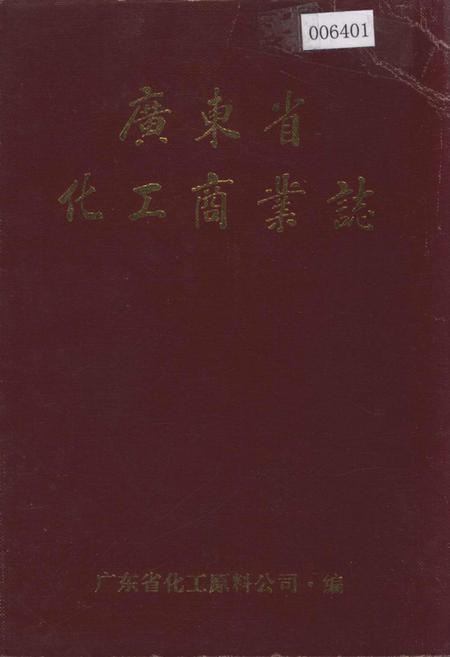 006401
廣東省
化工商業誌
广东省化工原料公司·编